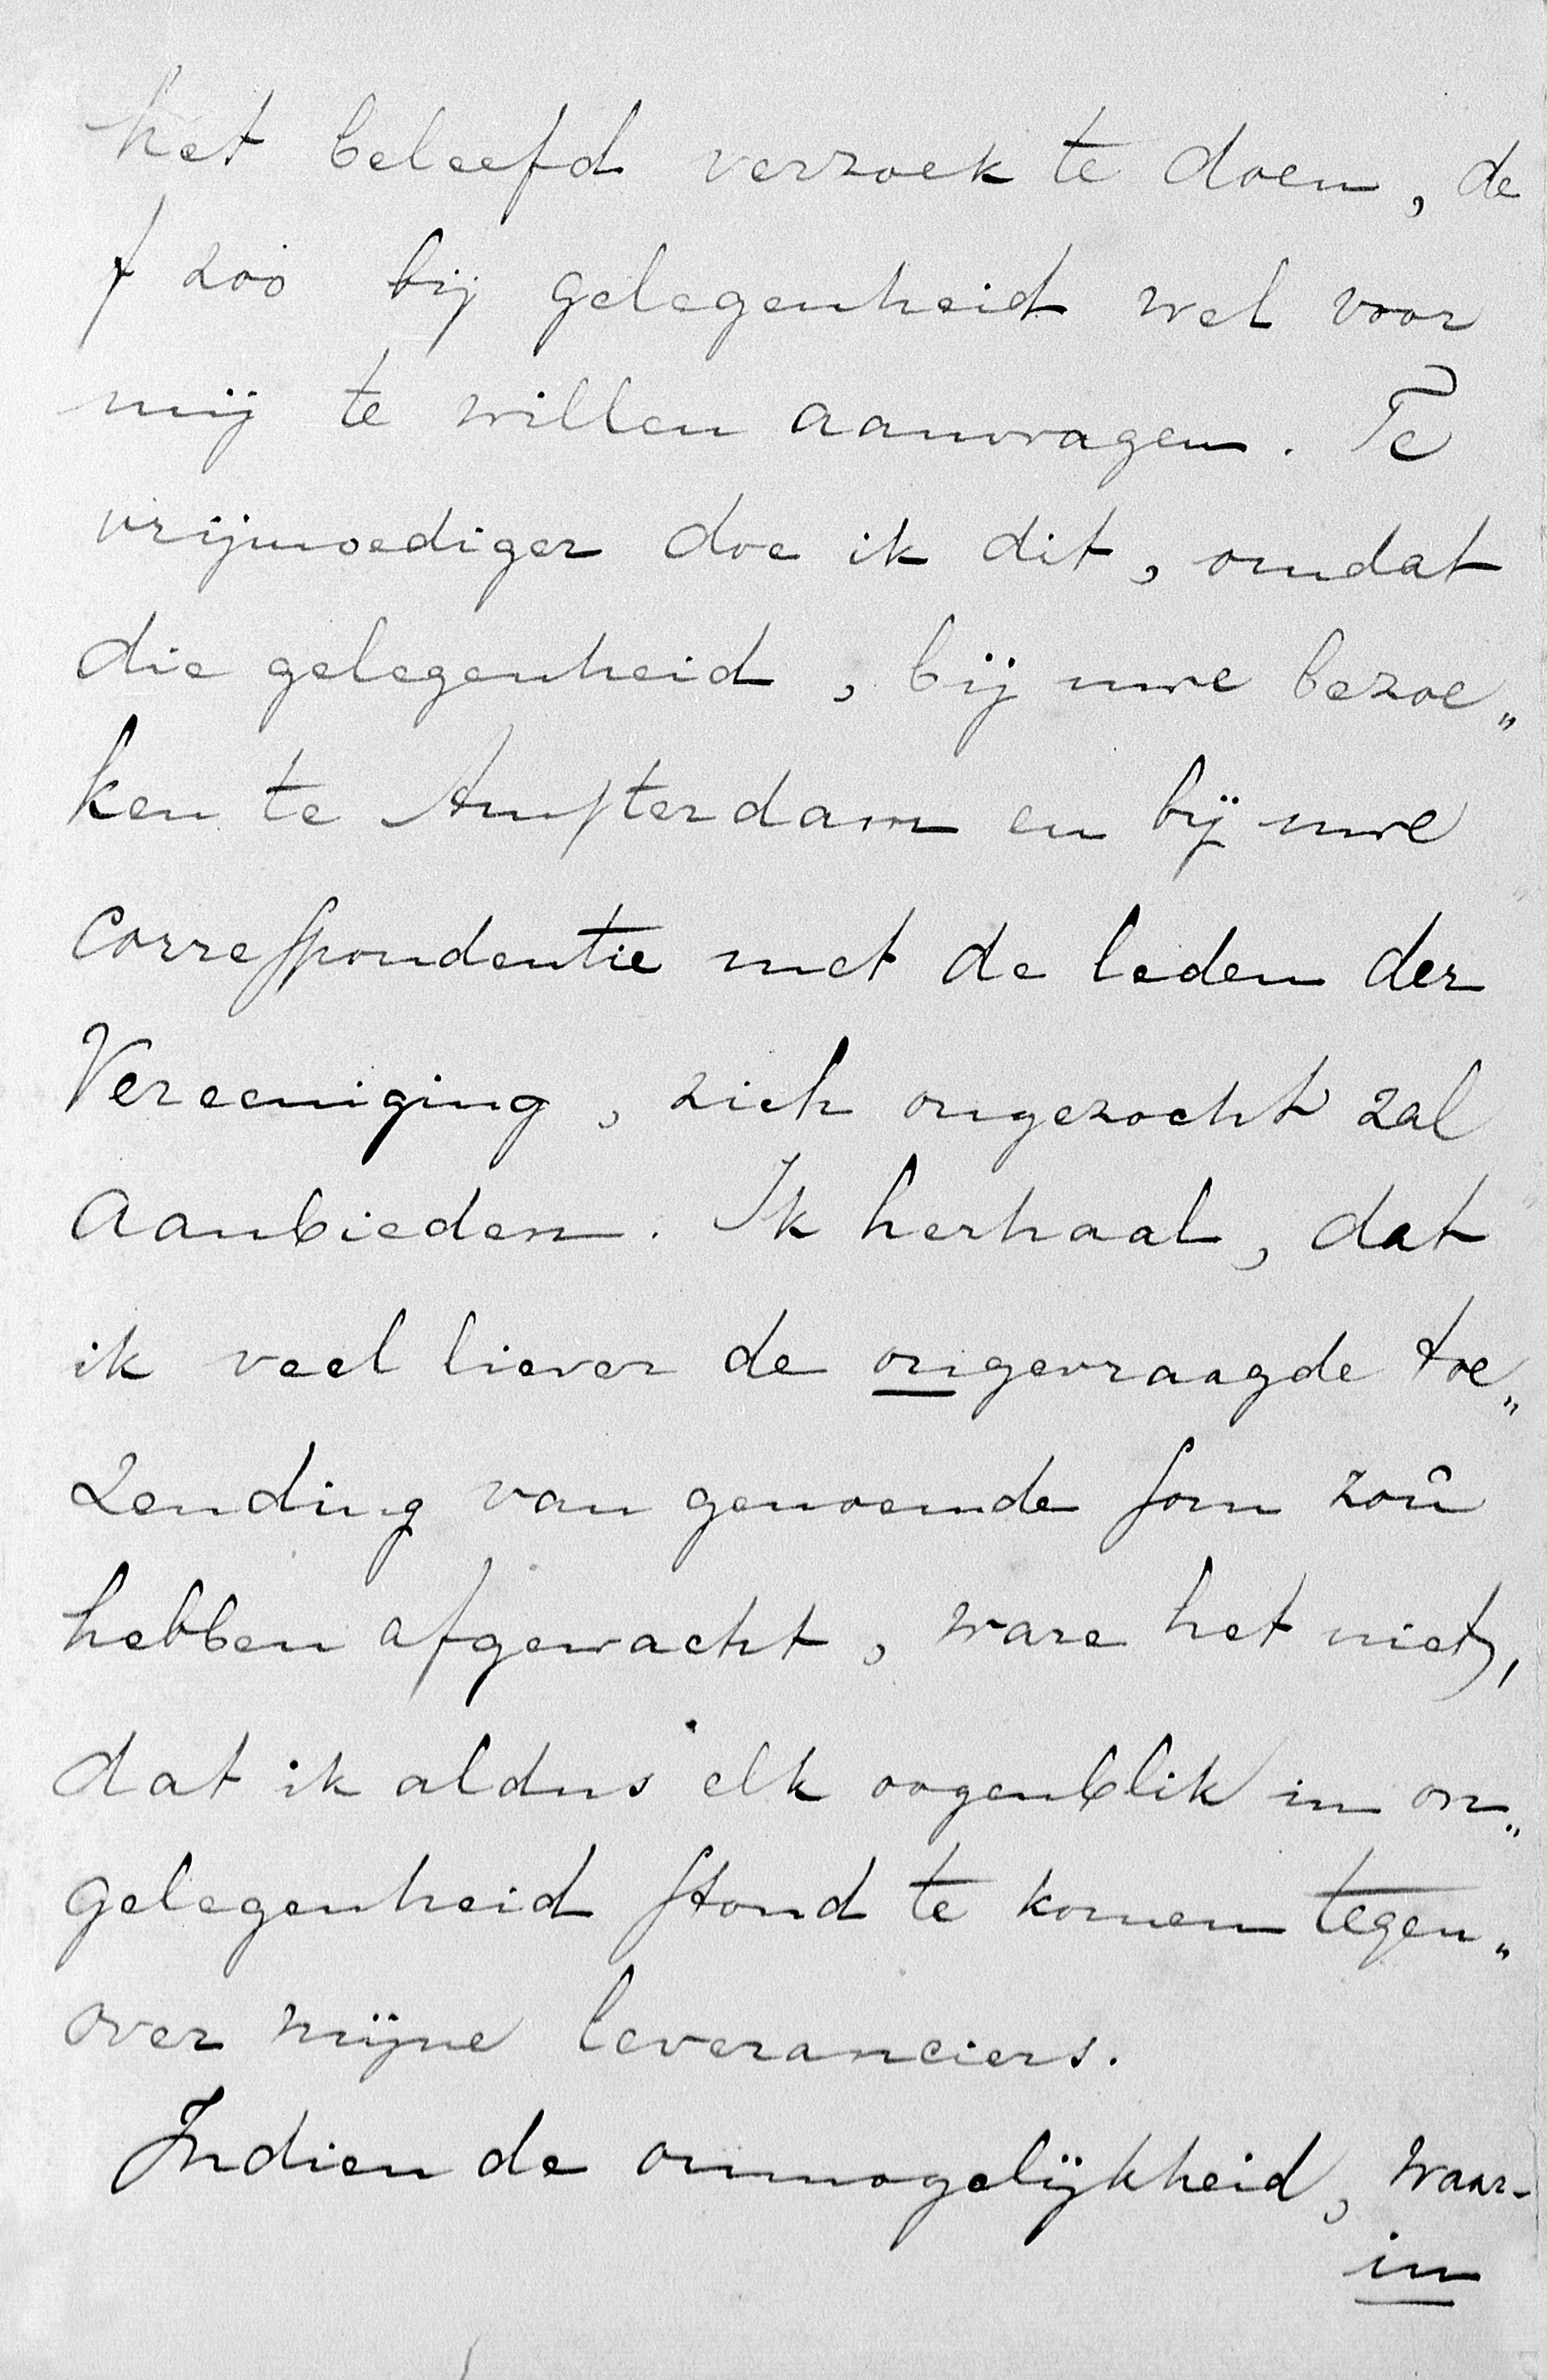 het beleefd verzoek te doen, de
f 200 bij gelegenheid wel voor
mij te willen aanvragen. Te
vrijmoediger doe ik dit, omdat
die gelegenheid, bij uwe bezoe„
ken te Amsterdam en bij uwe
Correspondentie met de leden der
Vereeniging, zich ongezocht zal
aanbieden. Ik herhaal, dat
ik veel liever de ongevraagde toe„
zending van genoemde som zoû
hebben afgewacht, ware het niet,
dat ik aldus elk oogenblik in on„
gelegenheid stond te komen tegen„
over mijne leveranciers.
Indien de onmogelijkheid, waar-
in